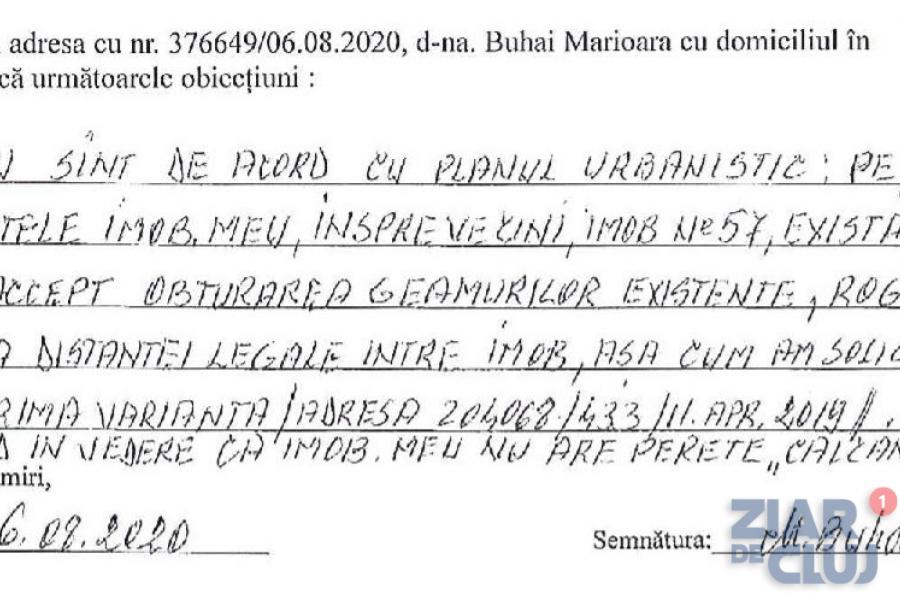 adresa cu nr. 376649/06.08.2020, d-na. Buhai Marioara cu domiciliul în
că următoarele obiecțiuni :
SÎNT DE ACORD CU PLANUL URBANISTIC; PE
TELE IMOB. MEU, INSPRE VECINI, IMOB Nº 57, EXISTA
ACCEPT OBTURAREA GEAMURILOR EXISTENTE, ROG
A DISTANTEI LEGALE INTRE IMOB, ASA CUM AM SOLIC
RIMA VARIANTA /ADRESA 204068/433/11. APR. 2019/.
IN VEDERE CA IMOB. MEU NU ARE PERETE „CALCAN
miri,
6.08.2020 Semnătura: M. Buha
ZIAR DE CLUJ 1